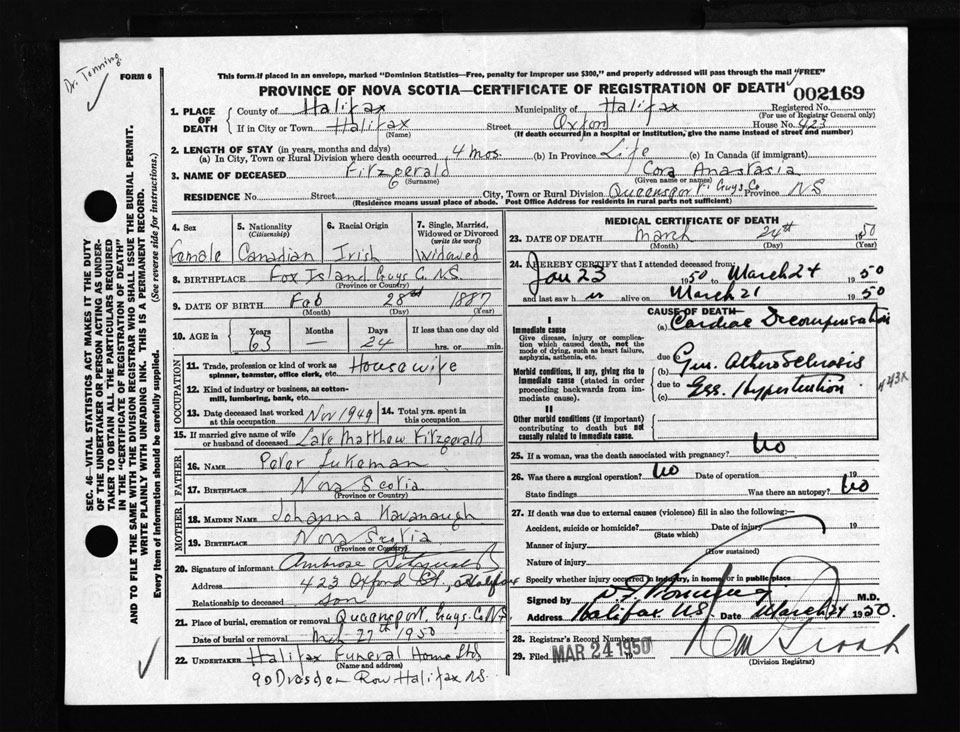 Dr. Tonning
FORM 6
This form if placed in an envelope, marked "Dominion Statistics—Free, penalty for improper use $300," and properly addressed will pass through the mail "FREE"
PROVINCE OF NOVA SCOTIA—CERTIFICATE OF REGISTRATION OF DEATH 002169
1. PLACE OF DEATH
County of Halifax Municipality of Halifax Registered No.
(For use of Registrar General only)
If in City or Town Halifax Street Oxford House No. 423
(Name) (If death occurred in a hospital or institution, give the name instead of street and number)
2. LENGTH OF STAY (in years, months and days)
(a) In City, Town or Rural Division where death occurred 4 mos. (b) In Province Life (c) In Canada (if immigrant)
3. NAME OF DECEASED Fitzgerald Cora Anastasia
(Surname) (Given name or names)
RESIDENCE No. Street City, Town or Rural Division Queensport Guys. Co Province N.S
(Residence means usual place of abode. Post Office Address for residents in rural parts not sufficient)
4. Sex 5. Nationality (Citizenship) 6. Racial Origin 7. Single, Married, Widowed or Divorced (write the word)
Female Canadian Irish Widowed
8. BIRTHPLACE Fox Island Guys C. N.S.
(Province or Country)
9. DATE OF BIRTH Feb 28 1887
(Month) (Day) (Year)
10. AGE in Years Months Days If less than one day old
63 — 24 hrs. or min.
OCCUPATION
11. Trade, profession or kind of work as spinner, teamster, office clerk, etc. Housewife
12. Kind of industry or business, as cotton-mill, lumbering, bank, etc.
13. Date deceased last worked at this occupation Nov 1949 14. Total yrs. spent in this occupation
15. If married give name of wife or husband of deceased Late Matthew Fitzgerald
FATHER
16. NAME Peter Lukeman
17. BIRTHPLACE Nova Scotia
(Province or Country)
MOTHER
18. MAIDEN NAME Johanna Kavanaugh
19. BIRTHPLACE Nova Scotia
(Province or Country)
20. Signature of informant Ambrose Fitzgerald
Address 423 Oxford St, Halifax
Relationship to deceased Son
21. Place of burial, cremation or removal Queensport. Guys. Co N.S
Date of burial or removal Mch 27th 1950
22. UNDERTAKER Halifax Funeral Home Ltd
(Name and address)
90 Dresden Row Halifax N.S.
MEDICAL CERTIFICATE OF DEATH
23. DATE OF DEATH March 24th 1950
(Month) (Day) (Year)
24. I HEREBY CERTIFY that I attended deceased from
Jan 23 1950 to March 24 1950
and last saw h alive on March 21 1950
CAUSE OF DEATH
I
Immediate cause
Give disease, injury or complication which caused death, not the mode of dying, such as heart failure, asphyxia, asthenia, etc.
(a) Cardiac Decompensation
due to
Morbid conditions, if any, giving rise to immediate cause (stated in order proceeding backwards from immediate cause).
(b) Gen. Atherosclerosis
due to
(c) Ess. Hypertension
443X
II
Other morbid conditions (if important) contributing to death but not causally related to immediate cause.
25. If a woman, was the death associated with pregnancy? No
26. Was there a surgical operation? No Date of operation 19
State findings Was there an autopsy? No
27. If death was due to external causes (violence) fill in also the following:
Accident, suicide or homicide? Date of injury 19
(State which)
Manner of injury
(How sustained)
Nature of injury
Specify whether injury occurred in industry, in home or in public place
Signed by M.D.
Address Halifax N.S. Date March 24 1950.
28. Registrar's Record Number
29. Filed MAR 24 1950
(Division Registrar)
SEC. 46—VITAL STATISTICS ACT MAKES IT THE DUTY
OF THE UNDERTAKER OR PERSON ACTING AS UNDER-
TAKER TO OBTAIN ALL THE PARTICULARS REQUIRED
IN THE "CERTIFICATE OF REGISTRATION OF DEATH"
AND TO FILE THE SAME WITH THE DIVISION REGISTRAR WHO SHALL ISSUE THE BURIAL PERMIT.
WRITE PLAINLY WITH UNFADING INK. THIS IS A PERMANENT RECORD.
Every item of Information should be carefully supplied. (See reverse side for instructions.)